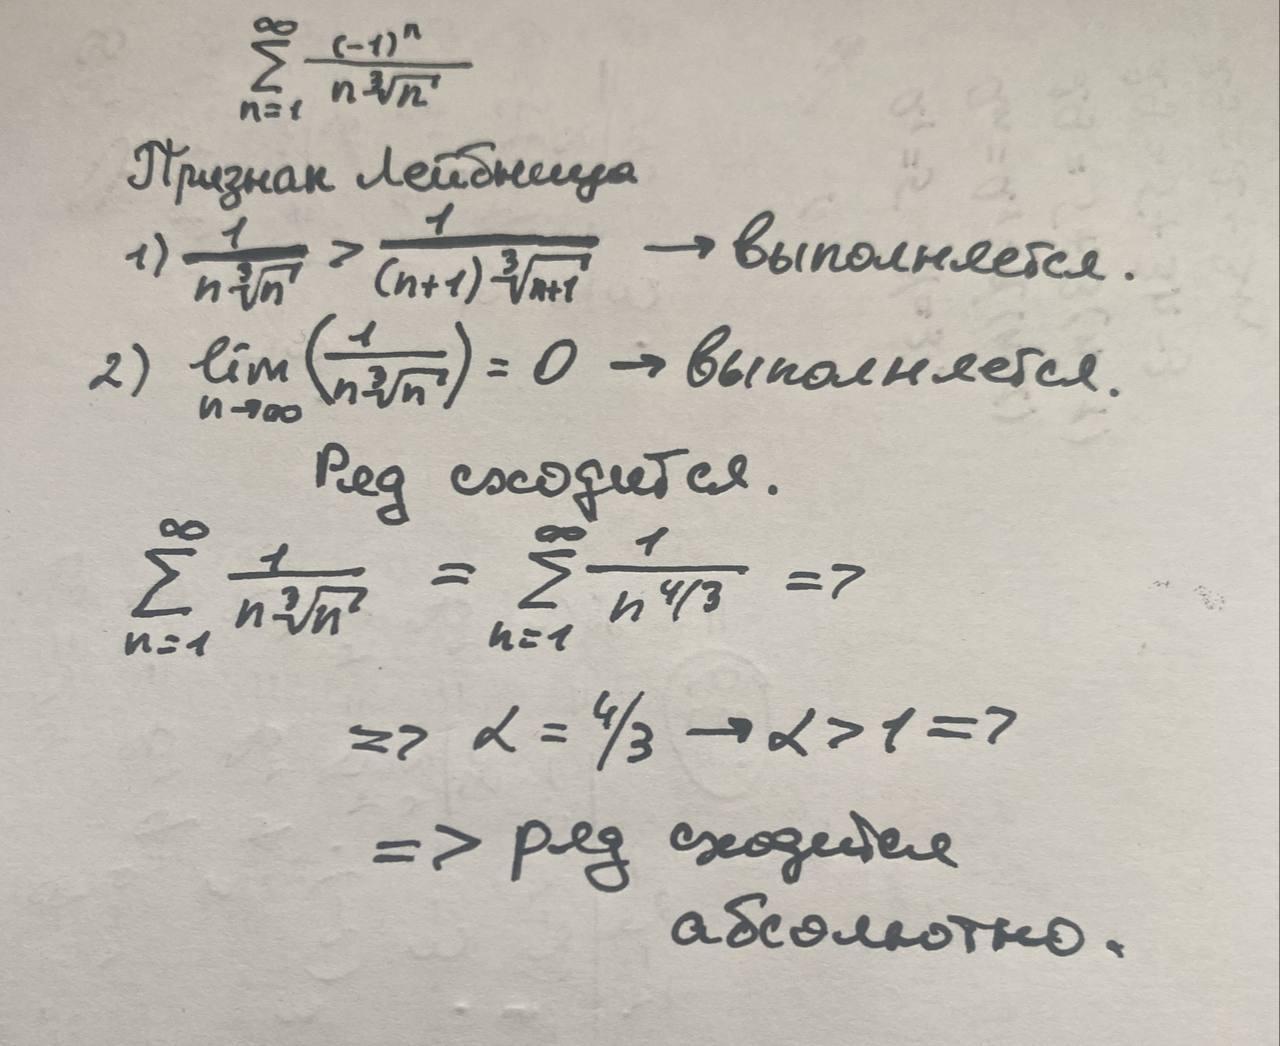 ∞∑n=1 (-1)ⁿ / n∛n
Признак Лейбница
1) 1 / n∛n > 1 / (n+1)∛n+1 → выполняется.
2) lim n→∞ (1 / n∛n) = 0 → выполняется.
Ряд сходится.
∞∑n=1 1 / n∛n = ∞∑n=1 1 / n^4/3 =>
=> α = 4/3 → α > 1 =>
=> ряд сходится
абсолютно.